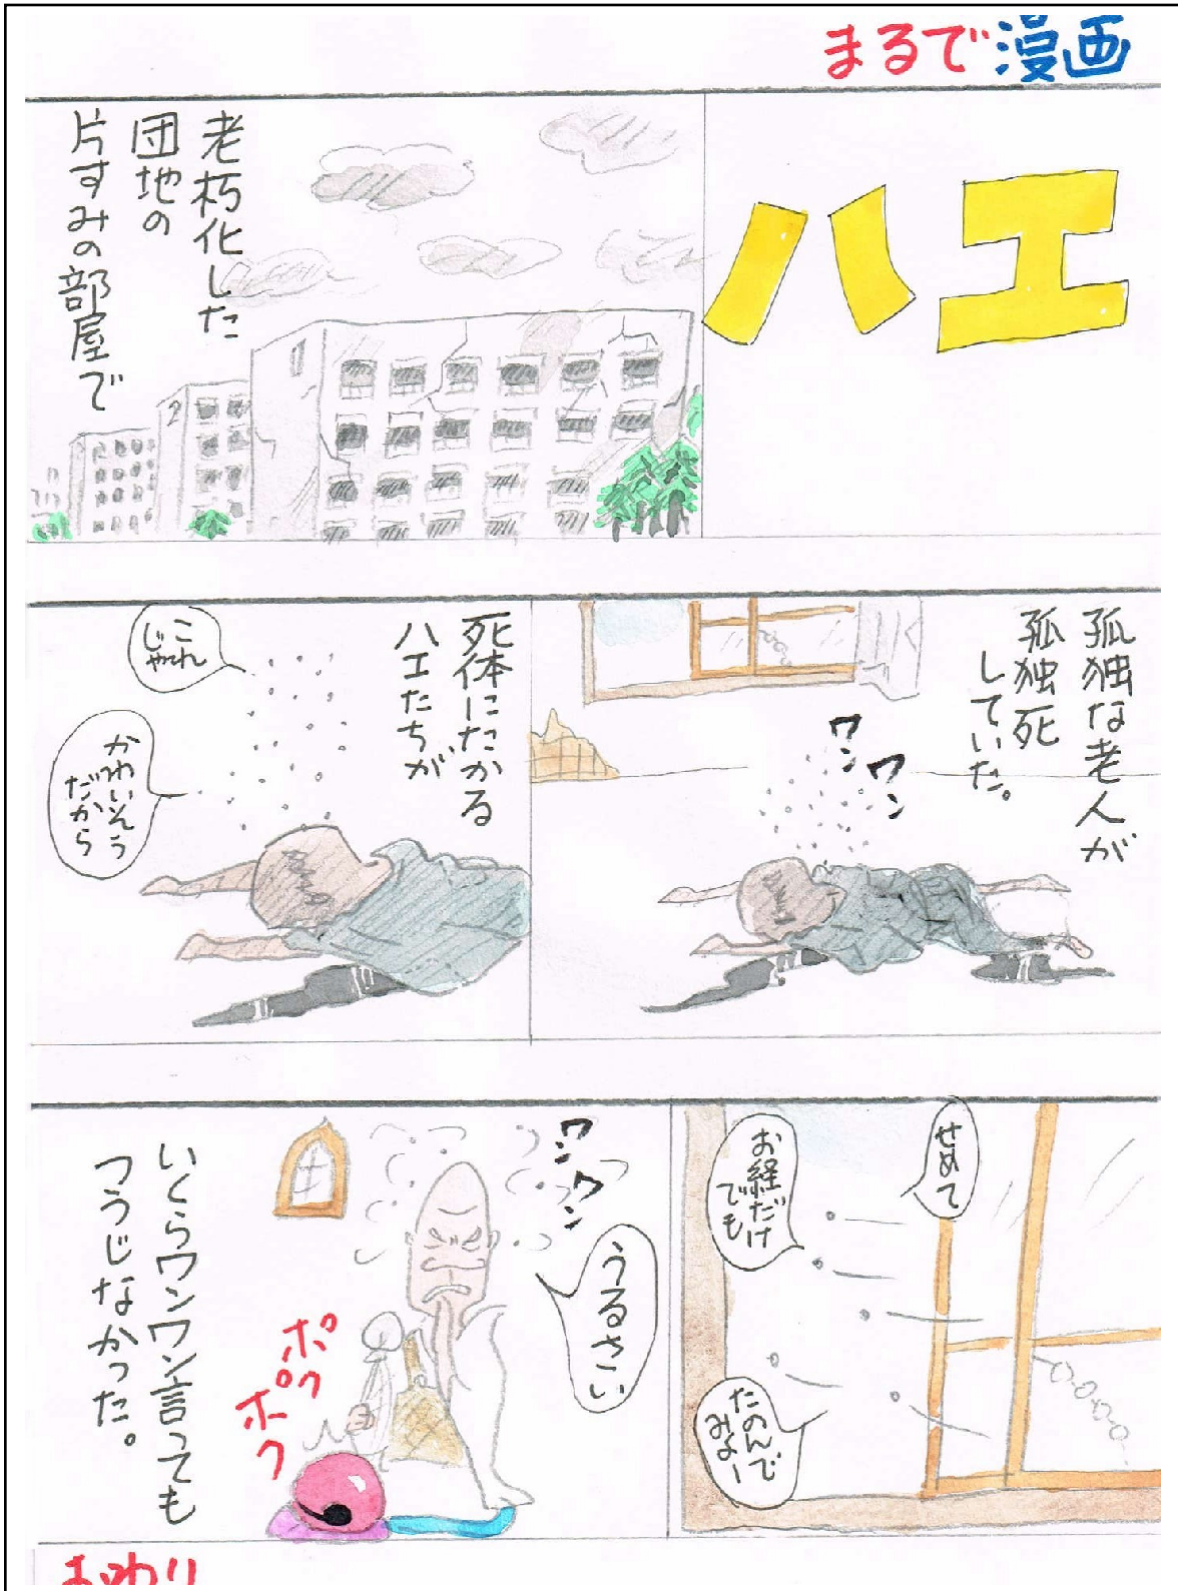 まるで漫画
ハエ
老朽化した
団地の
片すみの部屋で
孤独な老人が
孤独死
していた。
ワン
ワン
死体にたかる
ハエたちが
これ
じゃ
かわいそう
だから
せめて
お経だけ
でも
たのんで
みよー
ワン
ワン
うるさい
ポク
ポク
いくらワンワン言っても
つうじなかった。
おわり